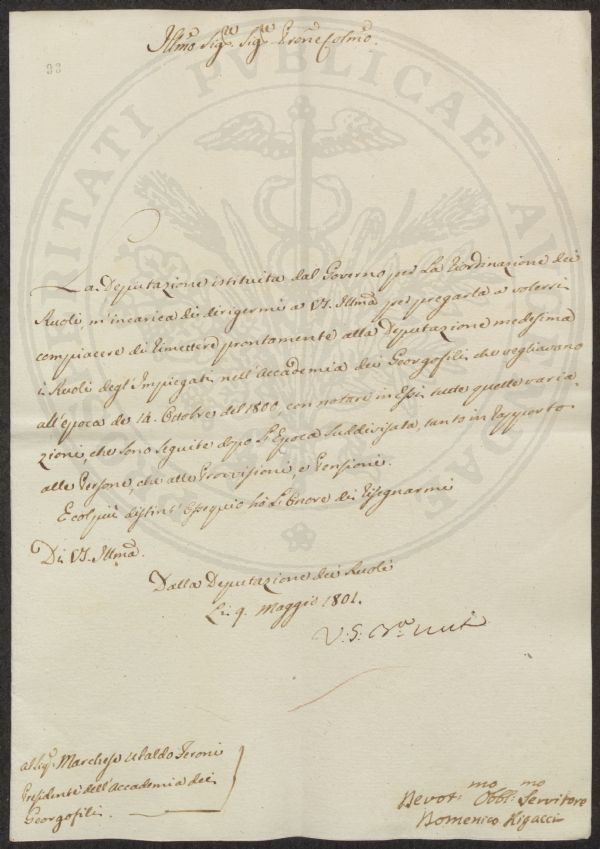 Illmo Sigre Sigre Prone Colmo
33
PROSPERITATI PVBLICAE AVGENDAE
La Deputazione istituita dal Governo per La Riordinazione dei
Ruoli, m'incarica di dirigermi a VS. Illma per pregarla a volersi
compiacere di rimettere prontamente alla Deputazione medesima
i Ruoli degl'Impiegati nell'Accademia dei Georgofili che vegliavano
all'epoca de 14. Ottobre del 1800, con notare in Essi tutte quelle varia
zioni, che sono seguite dopo L'Epoca suddivisata, tanto in rapporto
alle Persone, che alle Provvisioni, e Pensioni.
E col più distint' Ossequio hò L'Onore di rassegnarmi
Di VS. Illma
Dalla Deputazione dei Ruoli
Li. 9. Maggio 1801.
V: S:
al Sigr. Marchese Ubaldo Feroni
Presidente dell'Accademia dei
Georgofili
Devotmo Obblmo Servitore
Domenico Rigacci